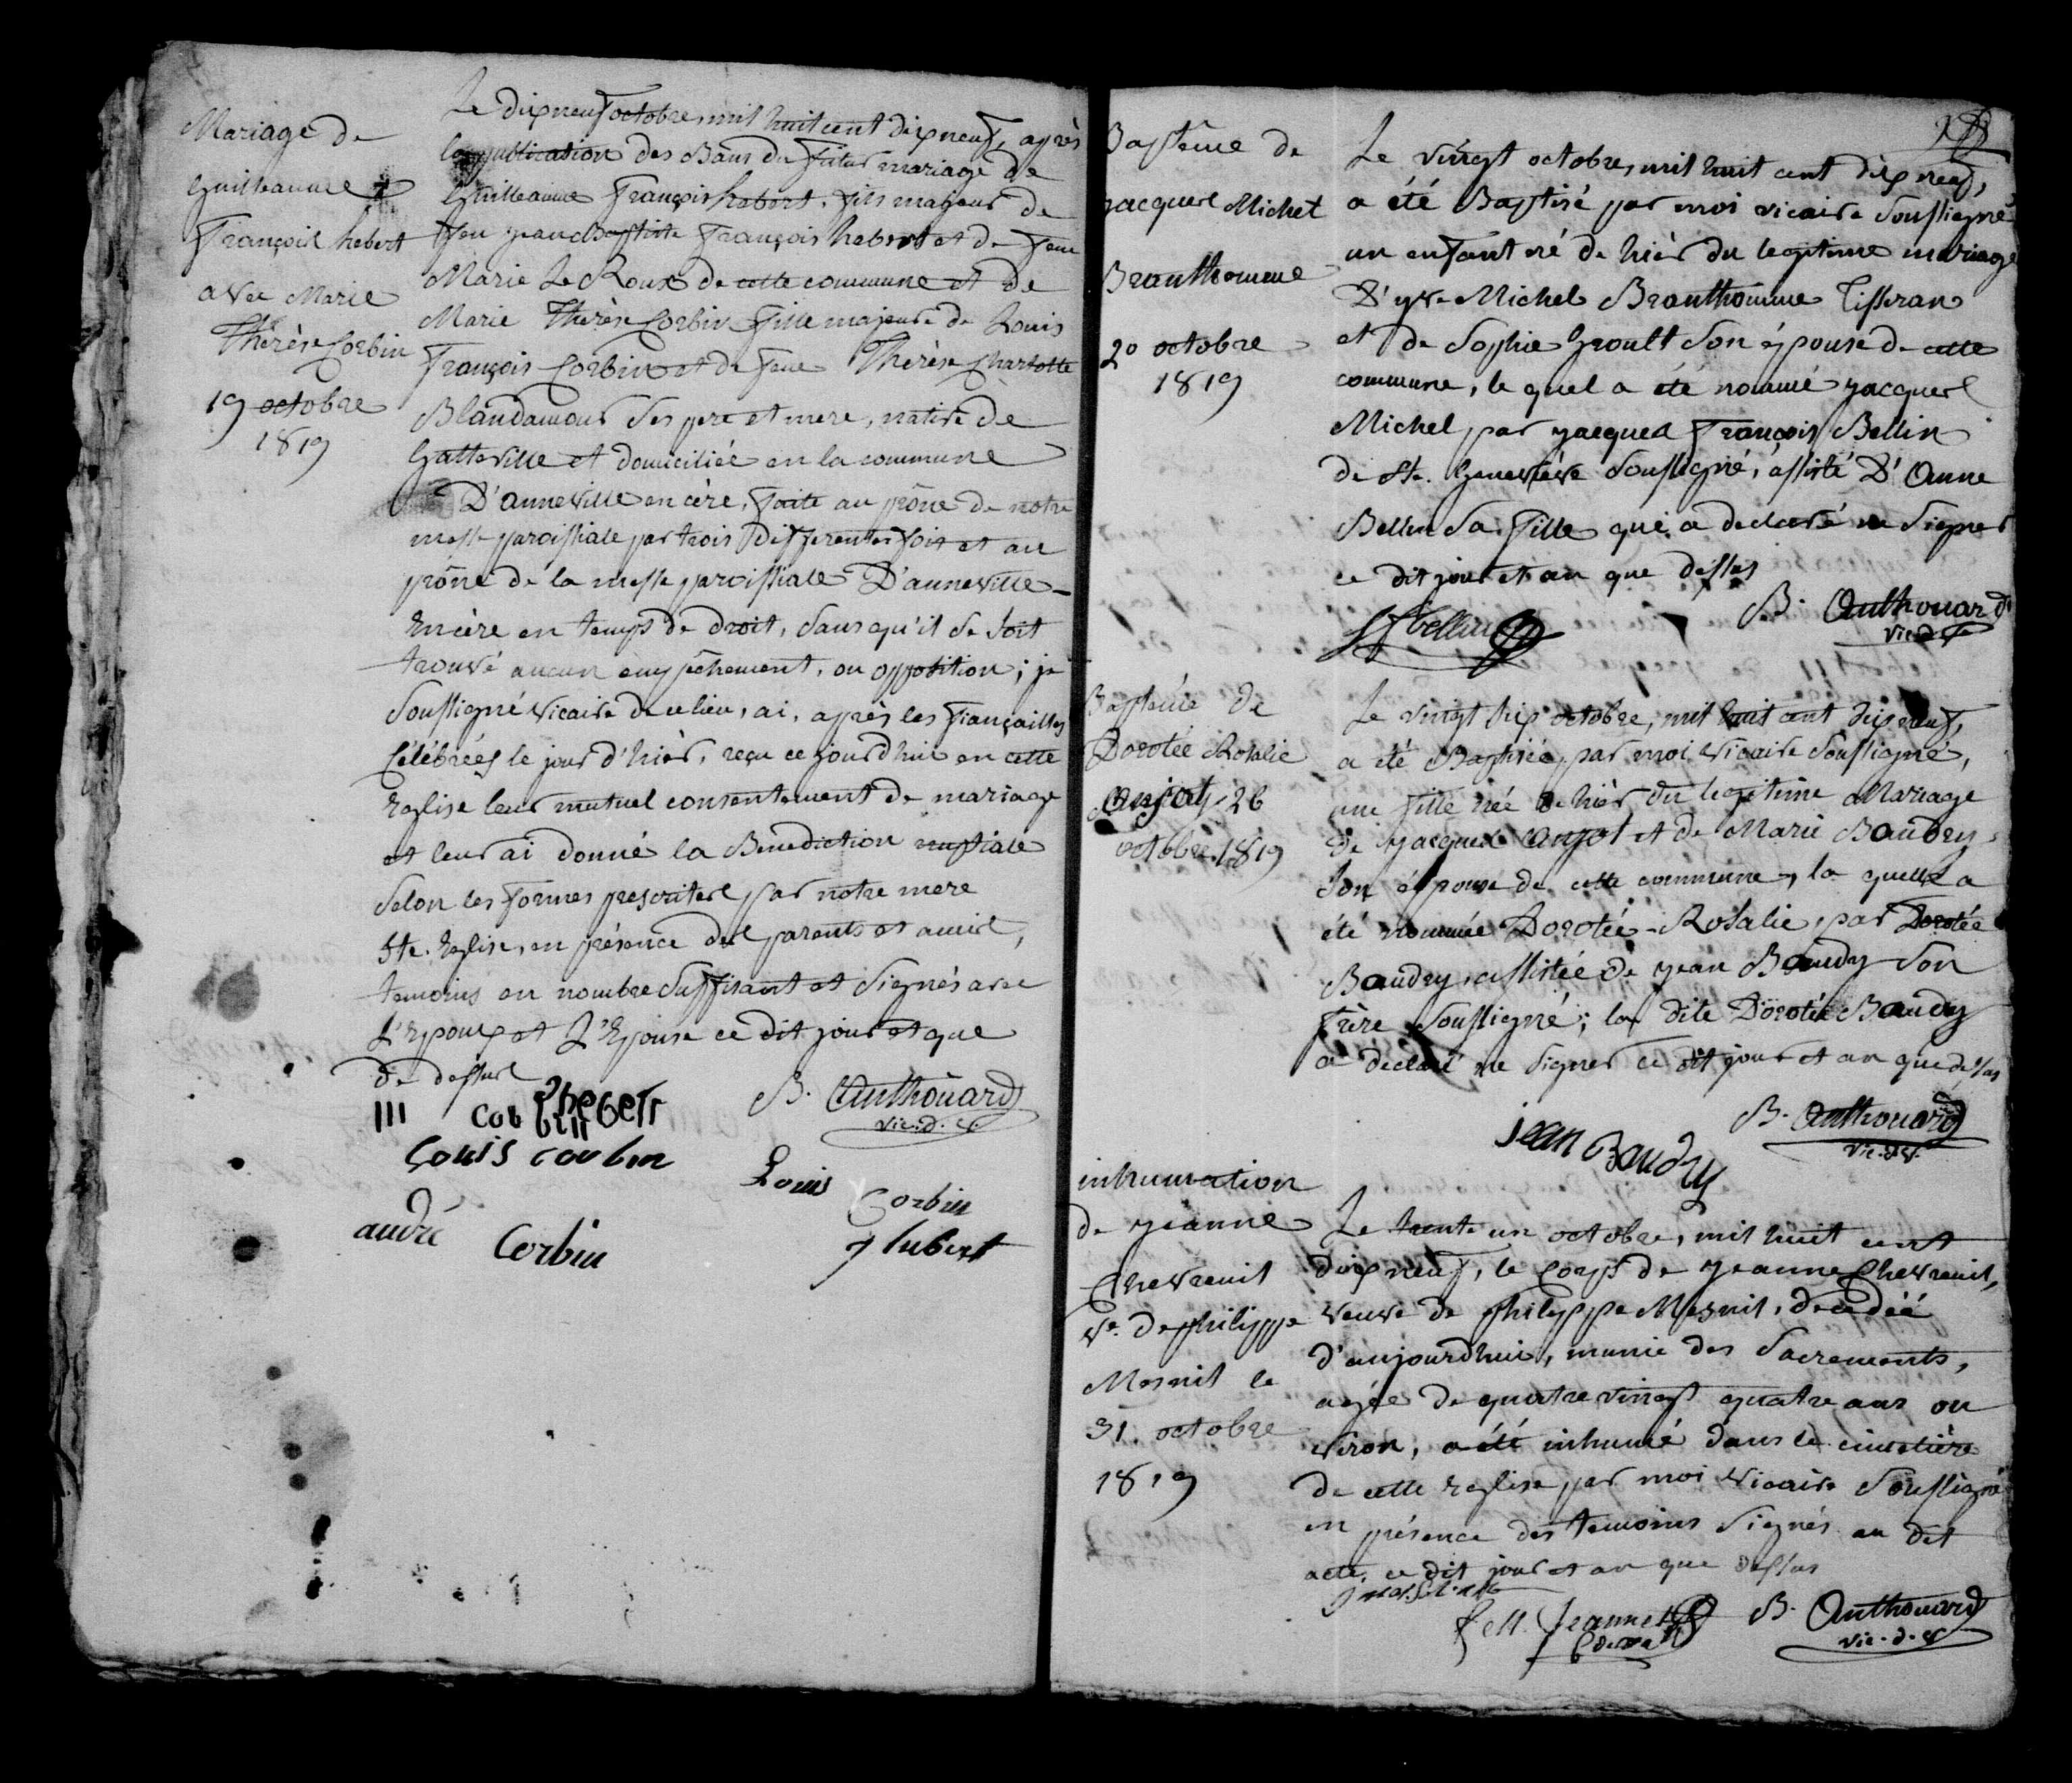 Mariage de
Guilleaume
François hebert
avec Marie
Thérèse Corbin
19 octobre
1819
Le dixneuf octobre, mil huit cent dixneuf, après
la publication des Bans du futur mariage de
Guilleaume François hebert, fils majeur de
feu jean Baptiste François hebert et de feue
Marie Le Roux de cette commune et de
Marie Thérèse Corbin fille majeure de Louis
François Corbin et de feue Thérèse Charlotte
Blandamour ses pere et mere, native de
Gatteville et domiciliée en la commune
D'anneville en cère, faite au prône de notre
messe paroissiale par trois differentes fois et au
prône de la messe paroissiale D'anneville-
Encère en temps de droit, sans qu'il se soit
trouvé aucun empêchement, ou opposition; je
soussigné vicaire de ce lieu, ai, après les fiançailles
Célébrées le jour d'hièr, reçu ce jourd'hui en cette
Eglise leur mutuel consentement de mariage
et leur ai donné la Benediction nuptiale
selon les formes prescrites par notre mere
Ste. Eglise, en présence des parents et amis,
temoins en nombre suffisant et signés avec
L'Epoux et L'Epouse ce dit jour et que
de dessus
hebert
Corbin
B. Anthouard
vic. d. G.
Louis corbin
Louis Corbin
andré Corbin
j hubert
Baptême de
jacques Michel
Branthomme
20 octobre
1819
Le vingt octobre, mil huit cent dixneuf,
a été Baptisé par moi vicaire soussigné
un enfant né de hièr du legitime mariage
D'yve Michel Branthomme Tisseran
et de Sophie Groult son épouse de cette
commune, le quel a été nommé jacques
Michel par jacques François Bellin
de Ste. Geneviève soussigné, assisté D'Anne
Bellin sa fille qui a declaré ne signer
ce dit jour et an que dessus
JF bellin
B. Anthouard
vic. d. G.
Bapteme de
Dorotée Rosalie
Anjot, 26
octobre 1819
Le vingt six octobre, mil huit cent dixneuf,
a été Baptisée par moi vicaire soussigné,
une fille née de hièr du legitime Mariage
de jacques Anjot et de Marie Baudry
son épouse de cette commune, la quelle a
été nommée Dorotée-Rosalie, par Dorotée
Baudry, assistée de jean Baudry son
frère soussigné; la dite Dorotée Baudry
a declaré ne signer ce dit jour et an que dessus
jean Baudry
B. Anthouard
vic. d. G.
inhumation
de jeanne
Chevreuil
ve. de philippe
Mesnil le
31. octobre
1819
Le trente un octobre, mil huit cent
dixneuf, le corps de jeanne Chevreuil,
veuve de philippe Mesnil, decedée
d'aujourdhui, munie des Sacrements,
agée de quatre vingt quatre ans en
viron, a été inhumé dans le cimetière
de cette Eglise par moi vicaire soussigné
en présence des temoins signés au dit
acte, ce dit jour et an que dessus
Jeannet
B. Anthouard
vic. d. G.